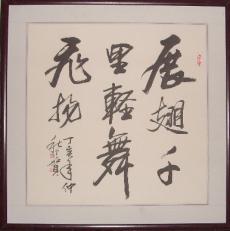 展翅千
里輕舞
飛揚
丁亥年仲
秋